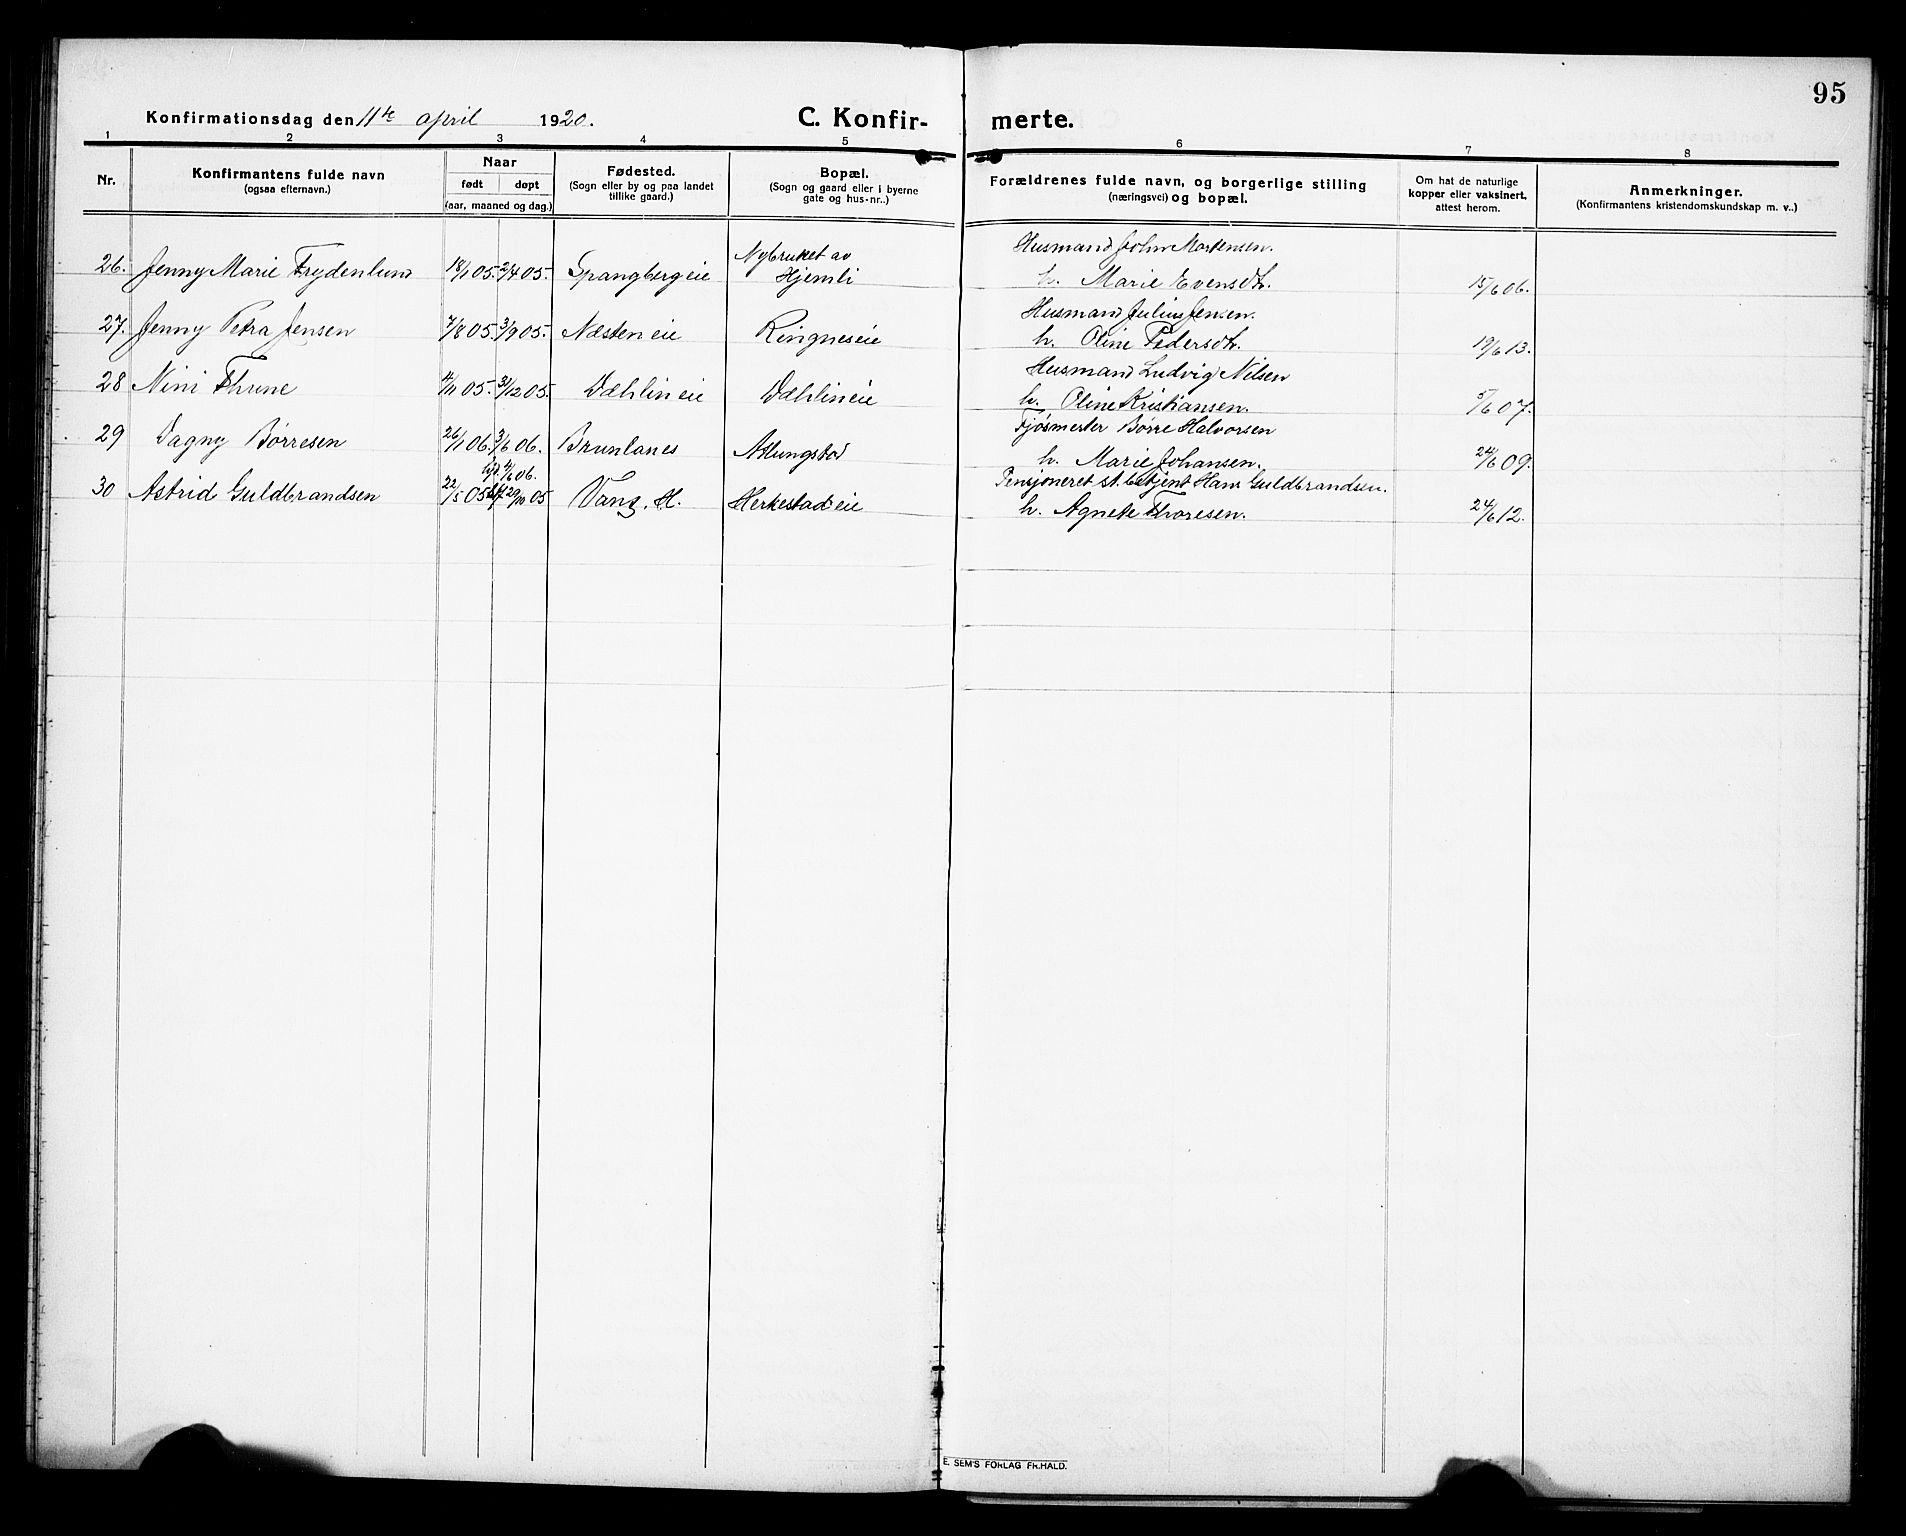 95
Konfirmationsdag den 11te april 1920.
C. Konfir- merte.
1 2 3 4 5 6 7 8
Nr.
Konfirmantens fulde navn
(ogsaa efternavn.)
Naar
født døpt
(aar, maaned og dag.)
Fødested.
(Sogn eller by og paa landet
tillike gaard.)
Bopæl.
(Sogn og gaard eller i byerne
gate og hus-nr..)
Forældrenes fulde navn, og borgerlige stilling
(næringsvei) og bopæl.
Om hat de naturlige
kopper eller vaksinert,
attest herom.
Anmerkninger.
(Konfirmantens kristendomskundskap m. v..)
26. Jenny Marie Frydenlund 18/1 05. 2/4 05. Spangbergeie Nybruket av
Hjemli
Husmand John Mortensen.
h. Marie Evensdtr. 15/6 06.
27. Jenny Petra Jensen 7/8 05. 3/9 05. Næsten eie Ringneseie
Husmand Julius Jensen.
h. Oline Pedersdtr. 19/6 13.
28 Nini Thune 4/11 05. 3/12 05. Dæhlin eie Dæhlin eie
Husmand Ludvig Nilsen
h. Oline Kristiansen. 5/6 07.
29 Dagny Børresen 26/1 06. 3/6 06. Brunlanes Atlungstad
Fjøsmester Børre Halvorsen
h. Marie Johansen. 24/6 09.
4/6 06.
30 Astrid Guldbrandsen 22/5 05 29/10 05 Vang. H. Herkestadeie
Pensjoneret st. betjent Hans Guldbrandsen.
h. Agnete Thoresen. 24/6 12.
E. SEM'S FORLAG FR.HALD.